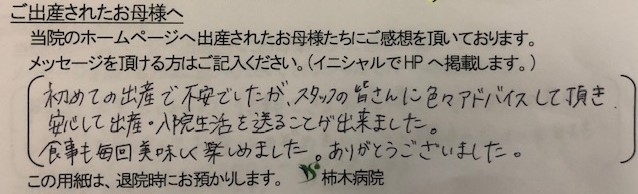 ご出産されたお母様へ
当院のホームページへ出産されたお母様たちにご感想を頂いております。
メッセージを頂ける方はご記入ください。(イニシャルでHPへ掲載します。)
初めての出産で不安でしたが、スタッフの皆さんに色々アドバイスして頂き
安心して出産・入院生活を送ることが出来ました。
食事も毎回美味しく楽しめました。ありがとうございました。
この用紙は、退院時にお預かりします。 柿木病院